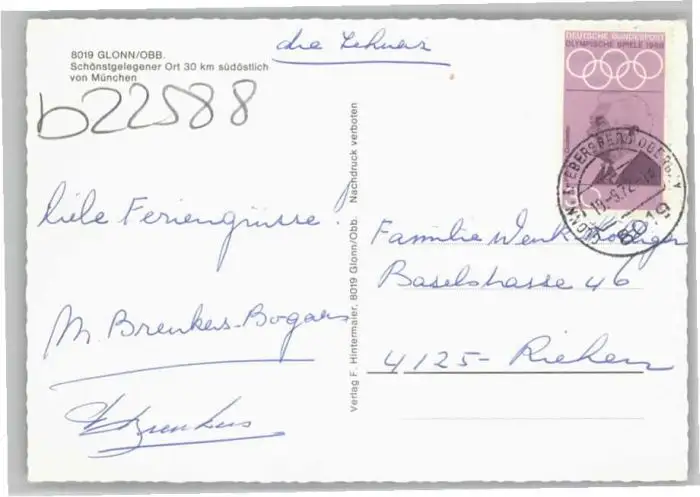 8019 GLONN/OBB.
Schönstgelegener Ort 30 km südöstlich
von München
b22588
liebe Feriengrüsse!
M. Brenkus-Bogaers
Brenkus
Verlag F. Hintermaier, 8019 Glonn/Obb. Nachdruck verboten
DEUTSCHE BUNDESPOST
OLYMPISCHE SPIELE 1968
8019
Familie Wenk
Baselstrasse 46
4125- Riehen